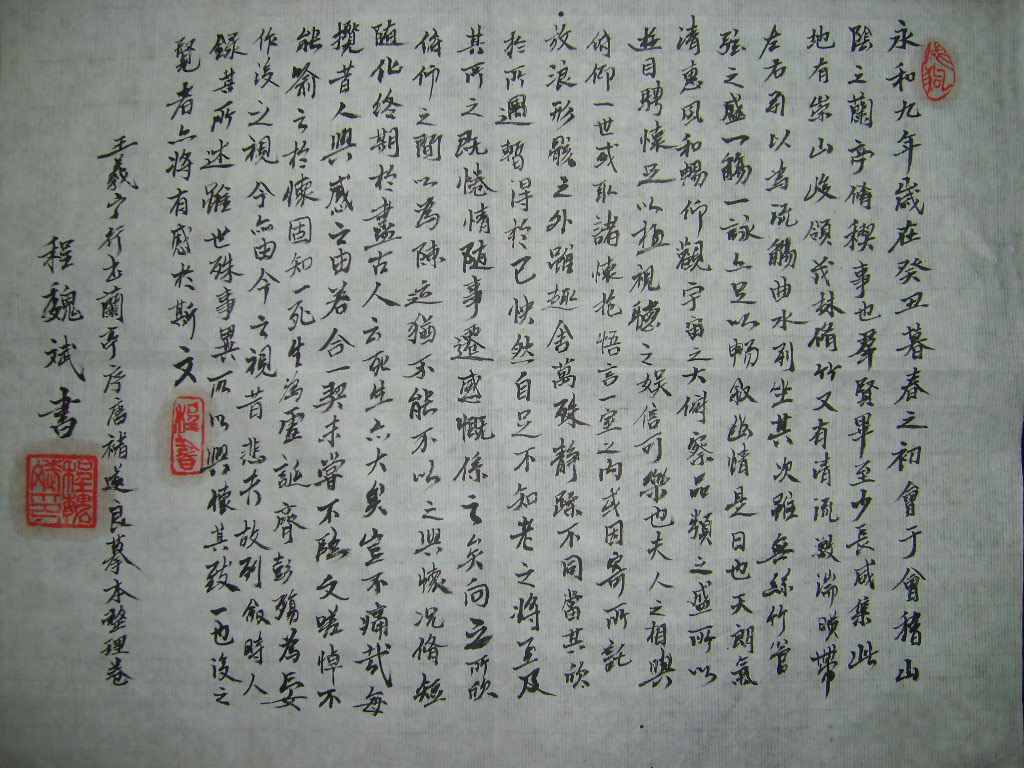 永和九年歲在癸丑暮春之初會于會稽山
陰之蘭亭脩稧事也羣賢畢至少長咸集此
地有崇山峻領茂林脩竹又有清流激湍暎帶
左右引以為流觴曲水列坐其次雖無絲竹管
弦之盛一觴一詠亦足以暢敘幽情是日也天朗氣
清惠風和暢仰觀宇宙之大俯察品類之盛所以
遊目騁懷足以極視聽之娛信可樂也夫人之相與
俯仰一世或取諸懷抱悟言一室之內或因寄所託
放浪形骸之外雖趣舍萬殊靜躁不同當其欣
於所遇暫得於己快然自足不知老之將至及
其所之既惓情隨事遷感慨係之矣向之所欣
俯仰之間以為陳迹猶不能不以之興懷況脩短
隨化終期於盡古人云死生亦大矣豈不痛哉每
攬昔人興感之由若合一契未嘗不臨文嗟悼不
能喻之於懷固知一死生為虛誕齊彭殤為妄
作後之視今亦由今之視昔悲夫故列敘時人
錄其所述雖世殊事異所以興懷其致一也後之
覽者亦將有感於斯文
王羲之行書蘭亭序唐褚遂良摹本整理卷
程魏斌書